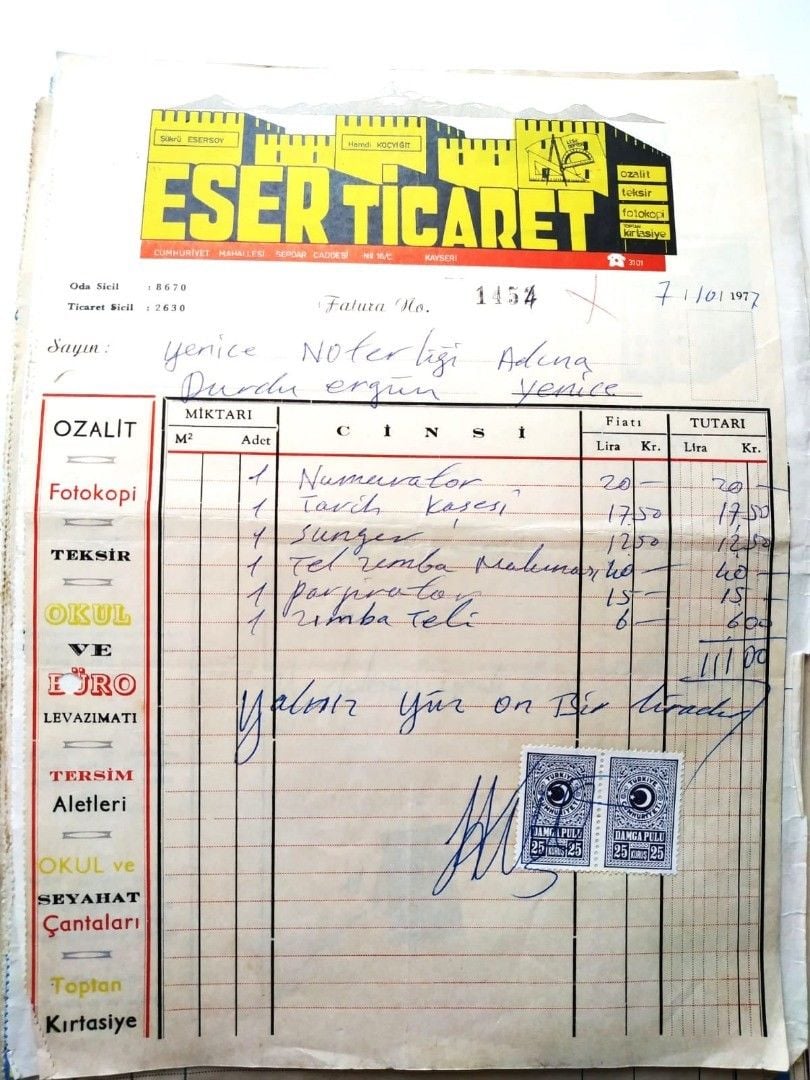 Şükrü ESERSOY
Hamdi KOÇYİĞİT
ESER TİCARET
ozalit
teksir
fotokopi
TOPTAN
kırtasiye
CUMHURİYET MAHALLESİ SERDAR CADDESİ No 16/C. KAYSERİ
3101
Oda Sicil : 8670
Ticaret Sicil : 2630
Fatura No. 1454
7/10/1977
Sayın : Yenice Noterliği Adına
Durdu ergün Yenice
MİKTARI CİNSİ Fiatı TUTARI
M² Adet Lira Kr. Lira Kr.
1 Numuratör 20 — 20 —
1 Tarih Kaşesi 17 50 17,50
1 Sünger 12 50 12,50
1 Tel zımba Makinası 40 — 40 —
1 parjiratör 15 — 15 —
1 zımba Teli 6 — 6 00
111 00
Yalnız yüz on Bir liradır
TÜRKİYE CUMHURİYETİ
DAMGA PULU
25 KURUŞ 25
TÜRKİYE CUMHURİYETİ
DAMGA PULU
25 KURUŞ 25
OZALİT
Fotokopi
TEKSİR
OKUL
VE
BÜRO
LEVAZIMATI
TERSİM
Aletleri
OKUL ve
SEYAHAT
Çantaları
Toptan
Kırtasiye